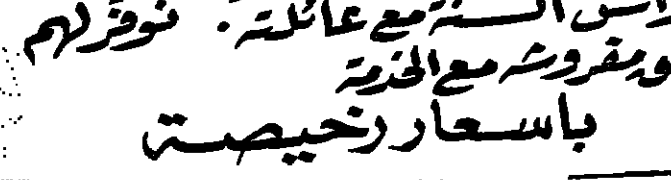 راس السنة مع عائلته. نوفرلهم
ومفروشه مع الخدمة
باسعار رخيصة